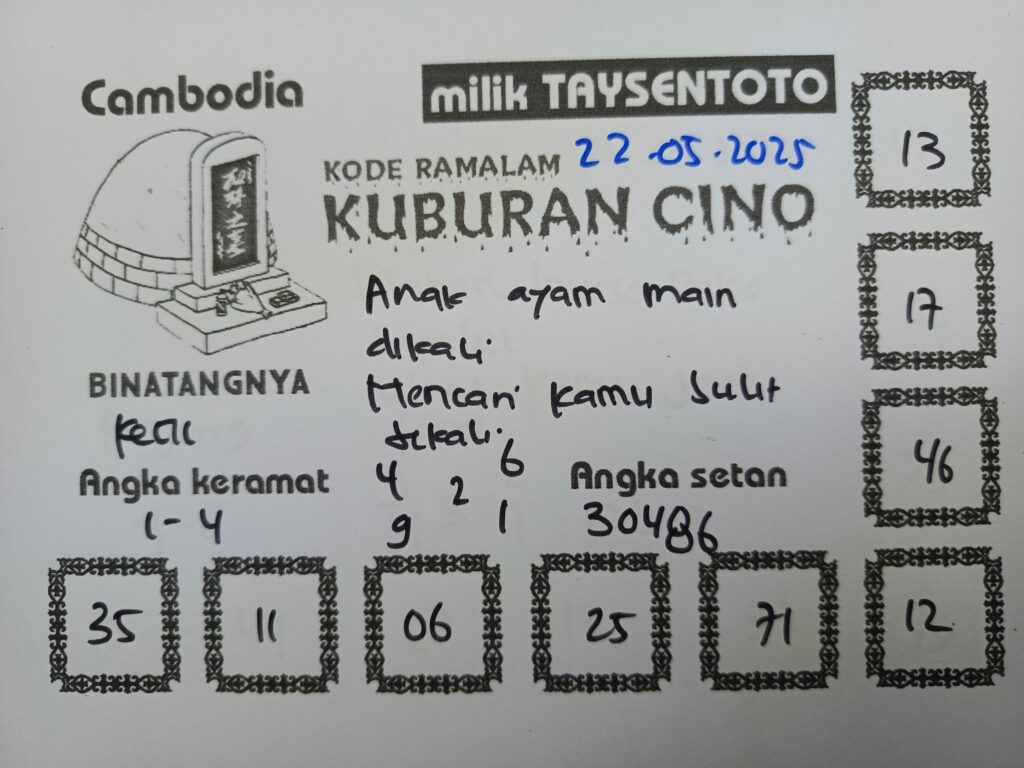 Cambodia
milik TAYSENTOTO
KODE RAMALAM 22-05-2025
KUBURAN CINO
Anak ayam main
dikali
Mencari kamu sulit
sekali
BINATANGNYA
kecil
Angka keramat
1-4
4 6
2
9 1
Angka setan
30486
13
17
46
12
35
11
06
25
71